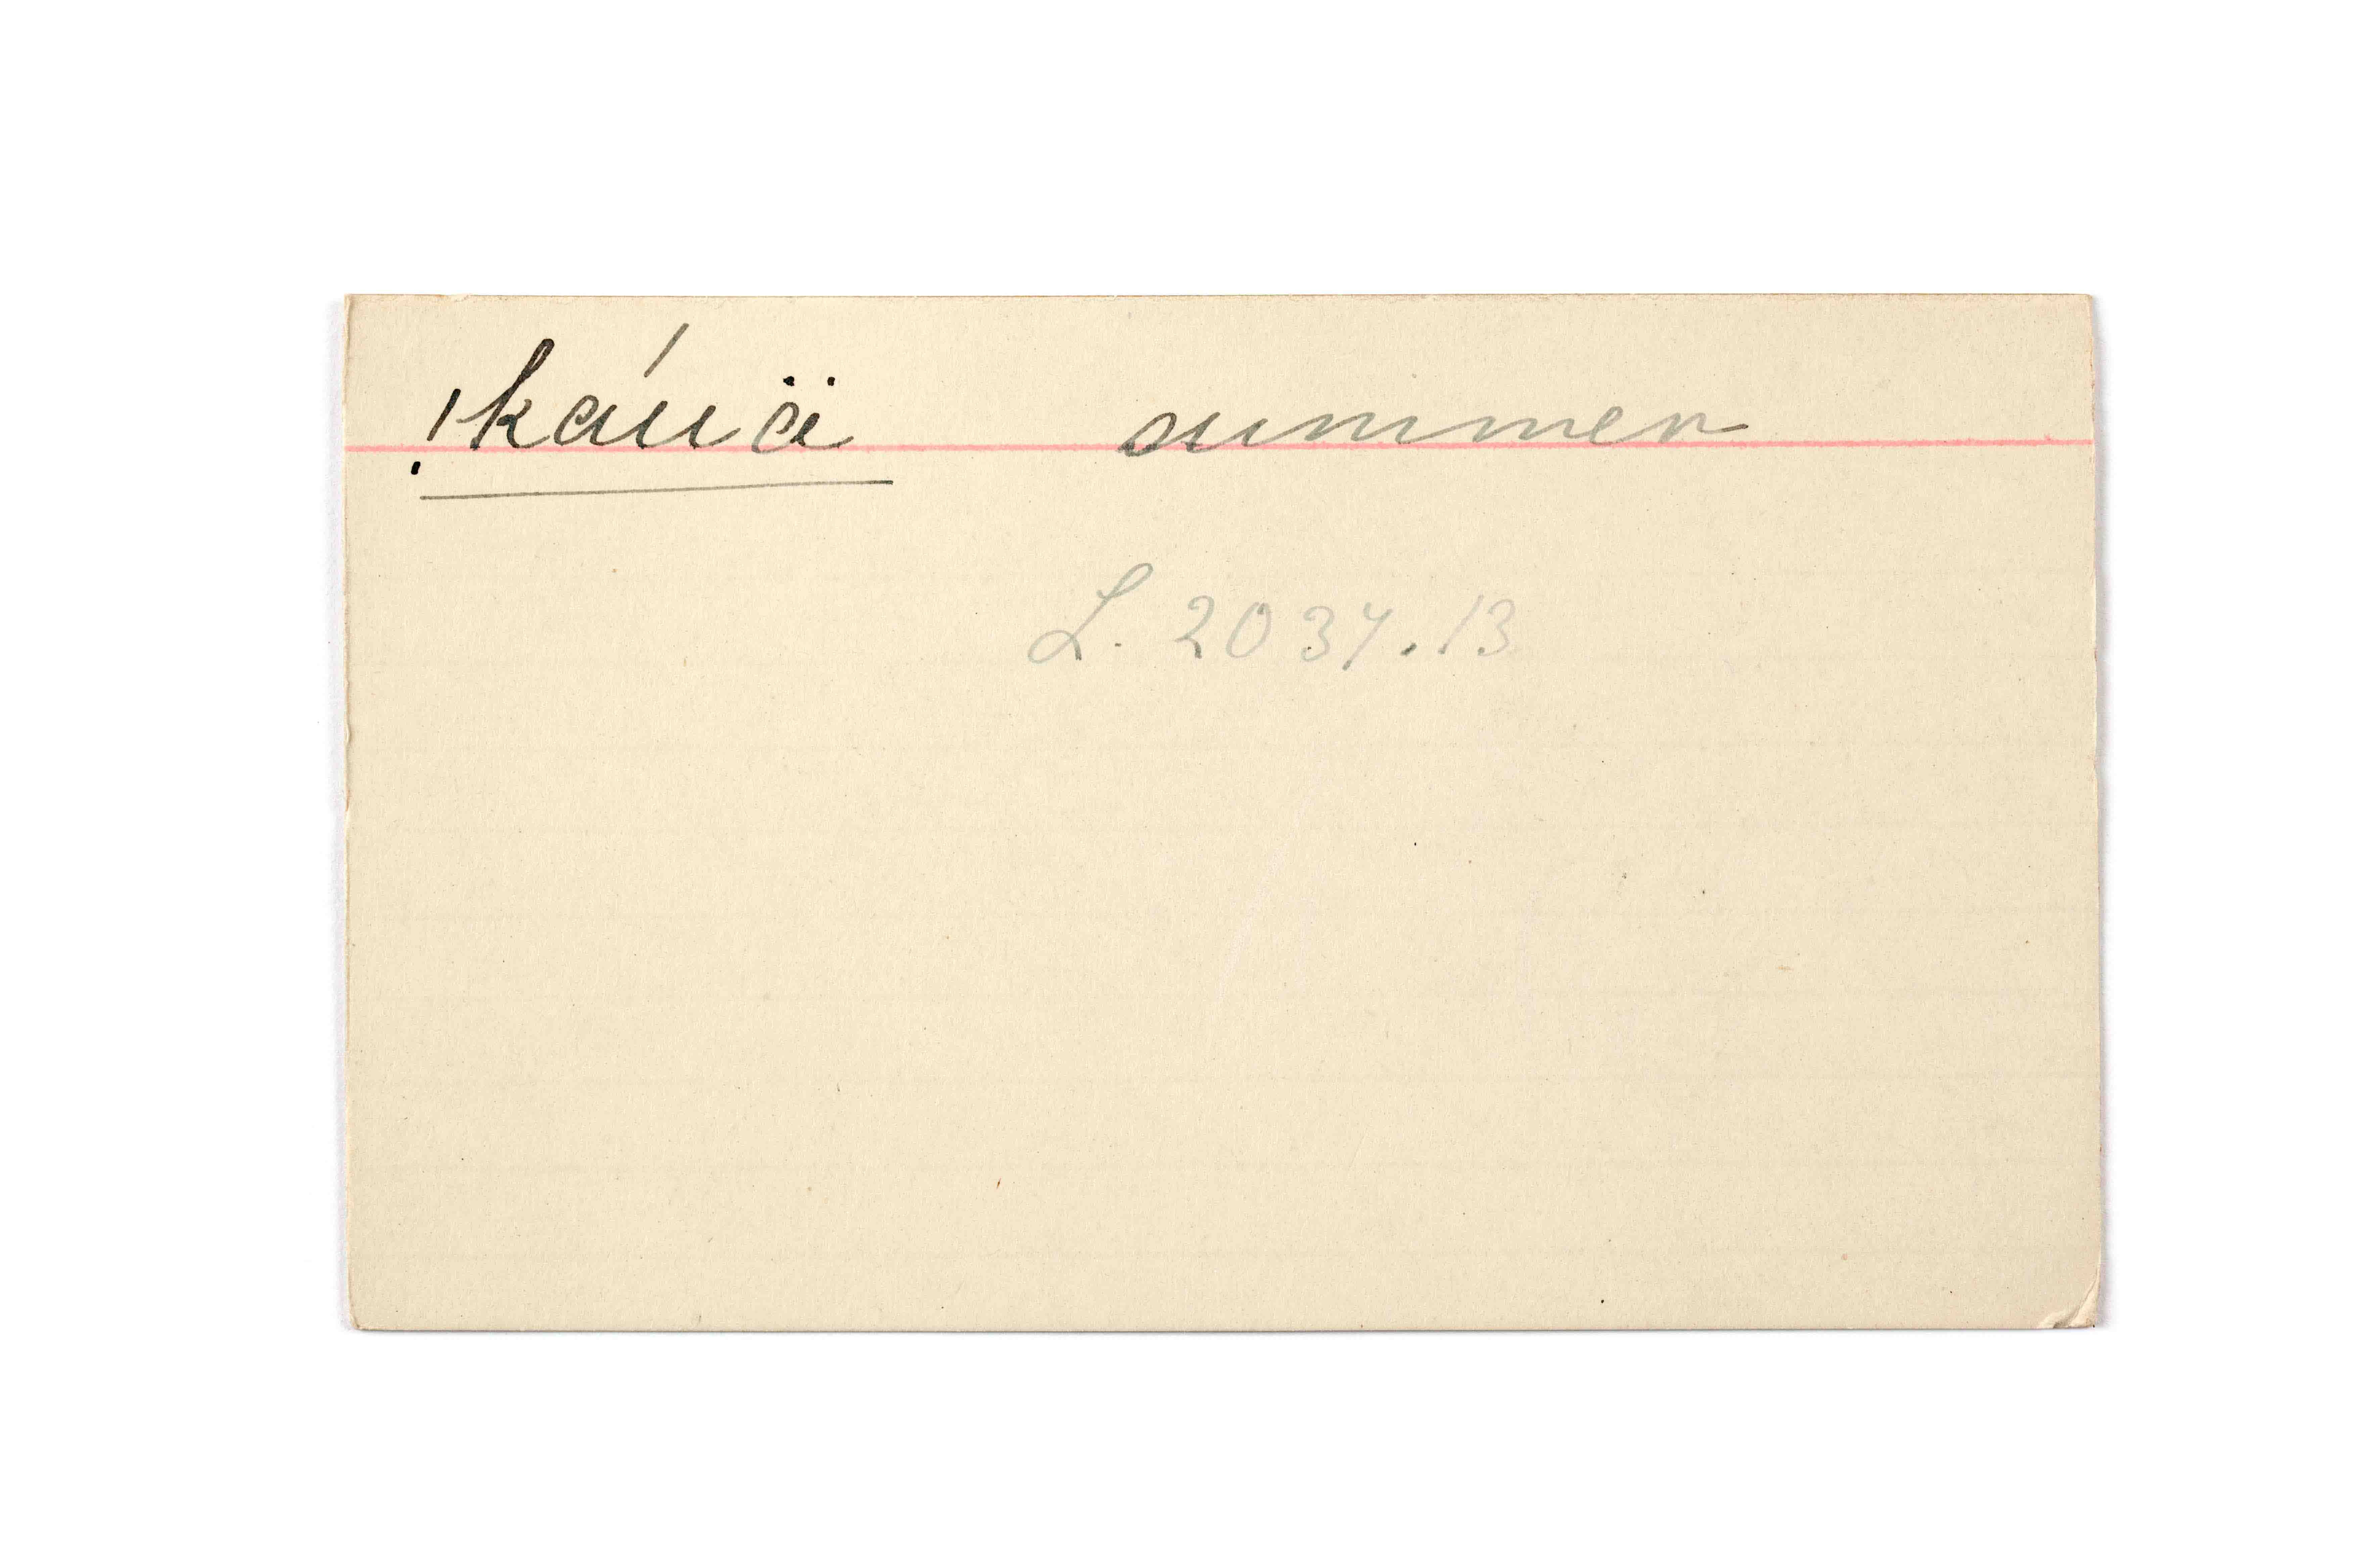 !káuä summer
L. 2037.13